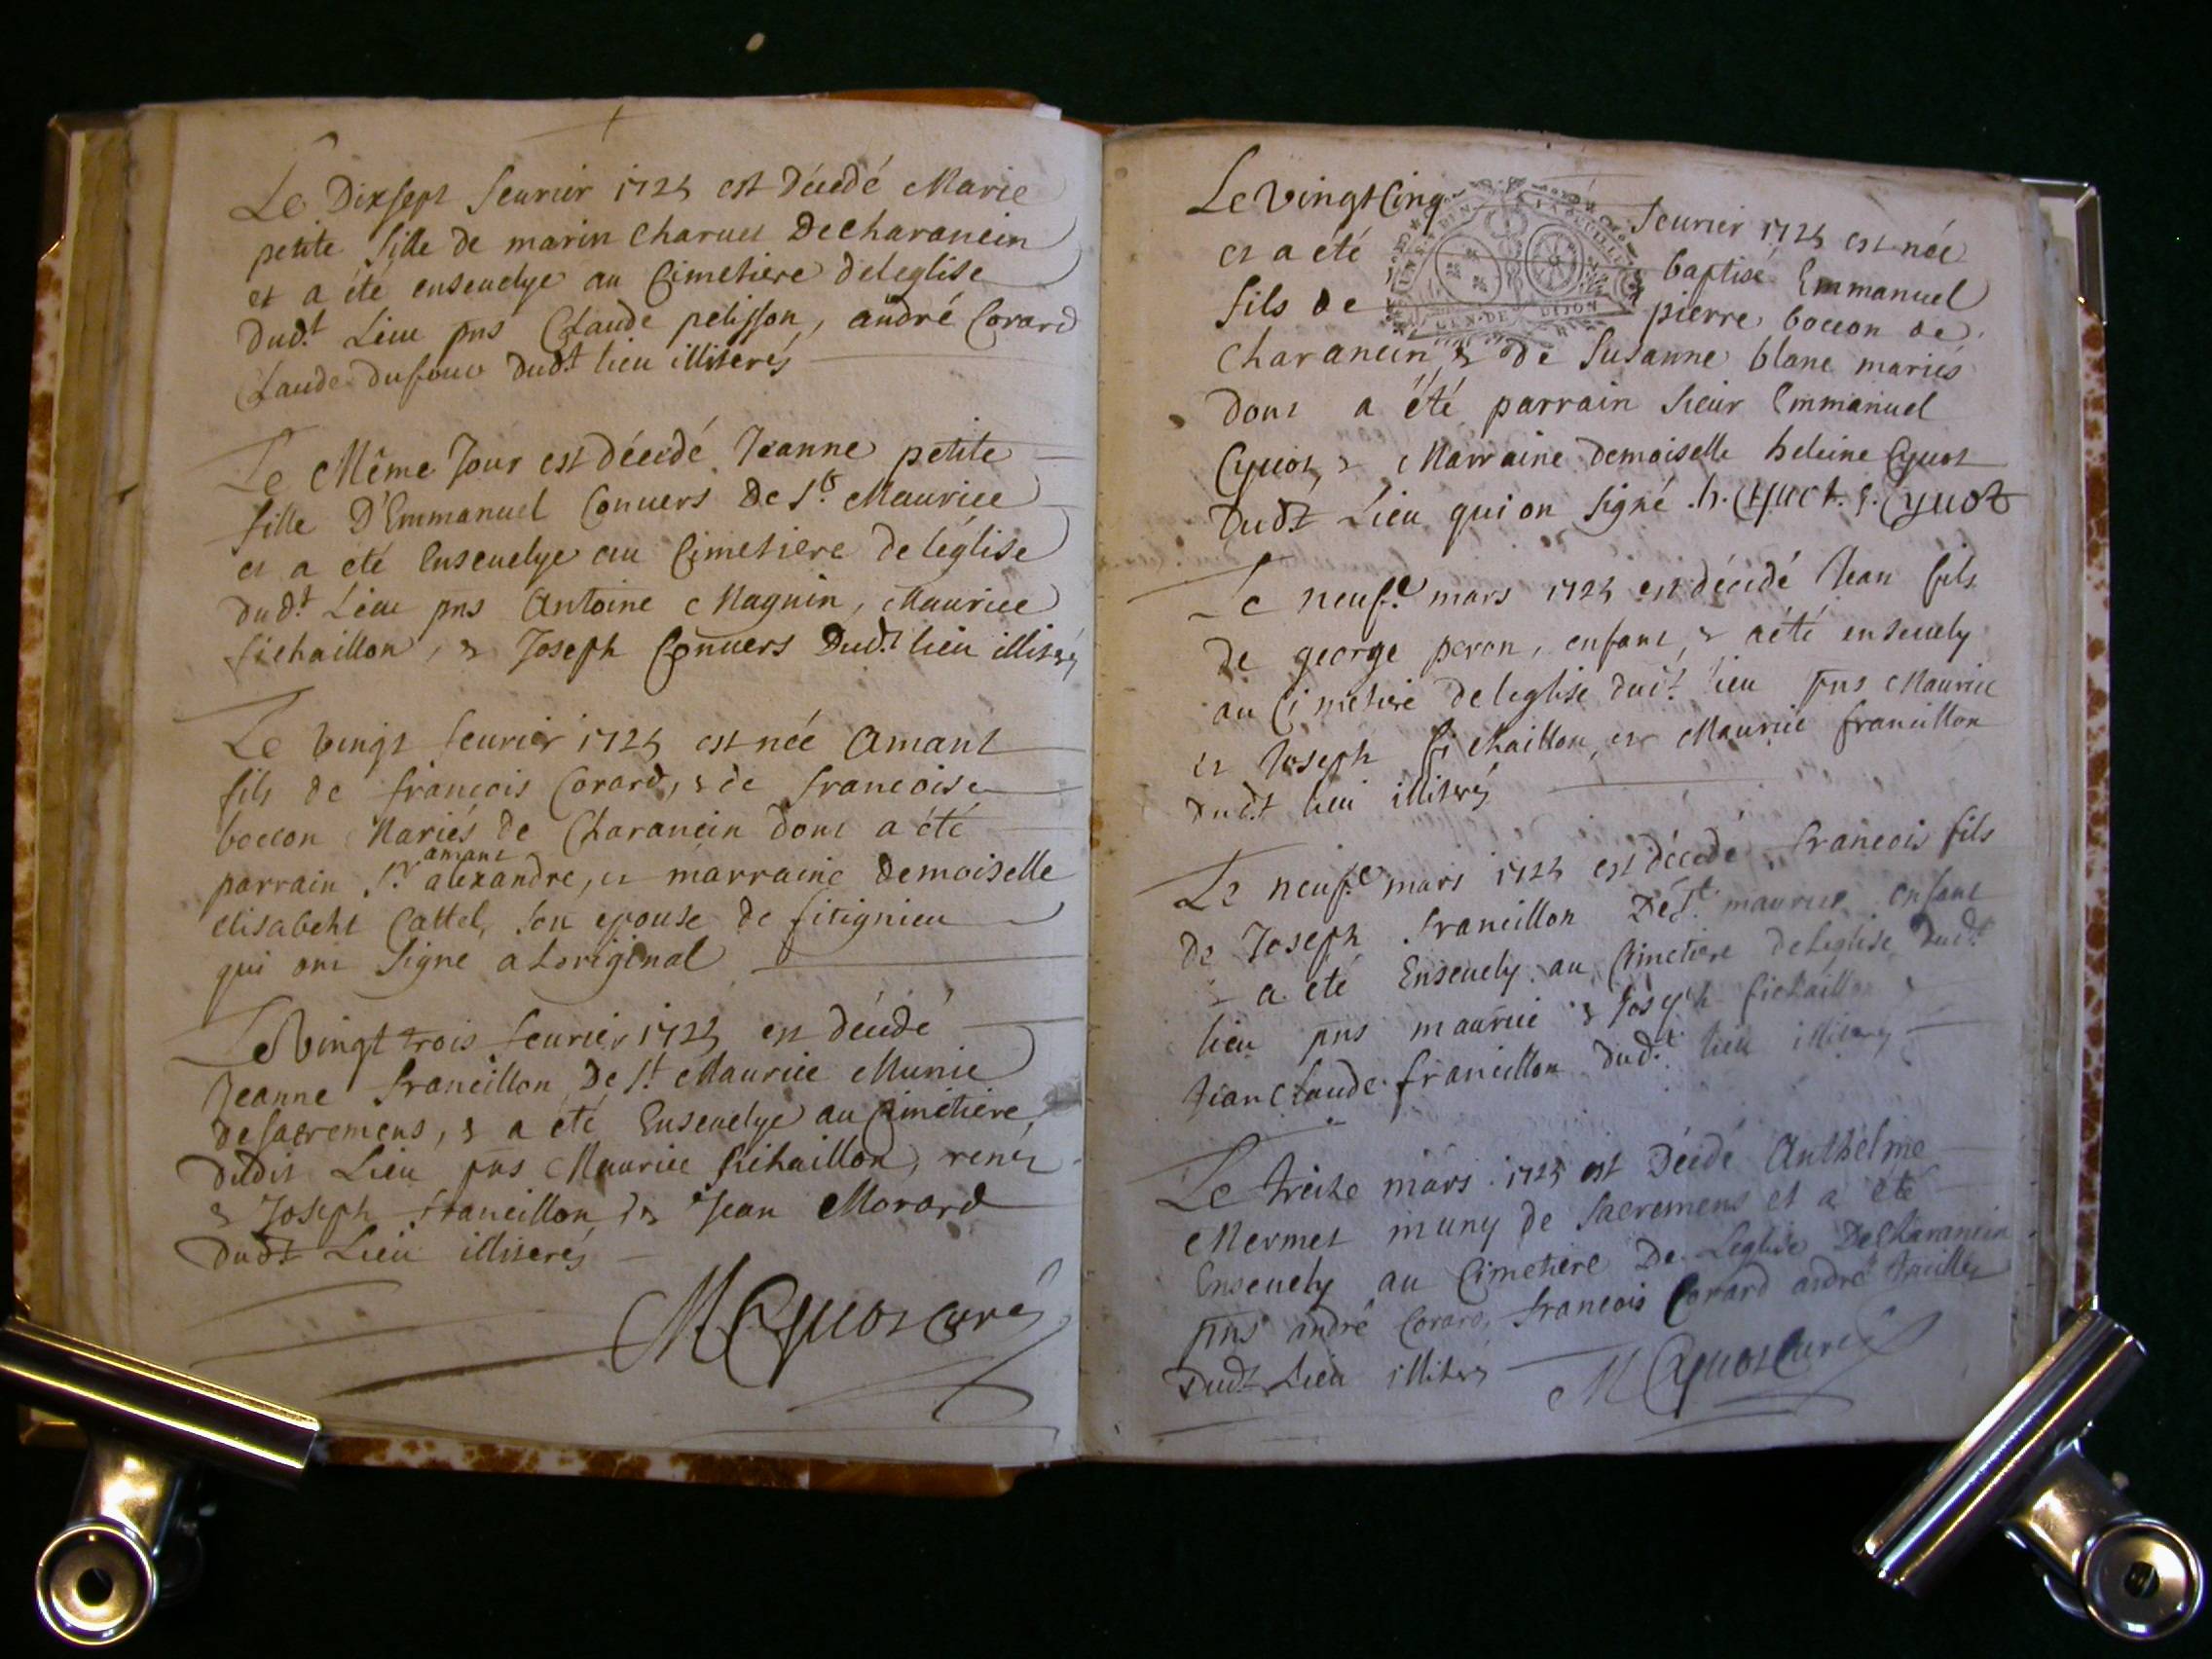 Le Dixsept feurier 1725 est Décedé Marie
petite fille de marin Charuet Decharancin
et a été enseuelye au Cimetiere deleglise
dud.t Lieu pns Claude pelisson, andré Corard
Claude dufour dud.t lieu illiterés
Le Même Jour est décedé Jeanne petite
fille D'Emmanuel Conuers De S.t Maurice
et a été Enseuelye au Cimetiere de léglise
dud.t Lieu pns Antoine Magnin, Maurice
fichaillon, & Joseph Conuers Dud.t lieu illiterés
Le vingt feurier 1725 est née Amant
fils de francois Corard, & de francoise
boccon Mariés de Charancin dont a été
amant
parrain S.r alexandre, et marraine Demoiselle
elisabeht Cattel, son epouse de fitignieu
qui ont Signe a Loriginal
Le Vingt trois feurier 1725 est décédé
Jeanne francillon De S.t Maurice Munie
de sacremens, & a été Enseuelye au Cimetiere
dudit Lieu pns Maurice fichaillon, renés
& Joseph francillon, & Jean Morard
dud.t Lieu illiterés
M Cyuot curé
Le vingt Cinq feurier 1725 est née
et a été baptisé Emmanuel
GEN·DE DIJON
fils de pierre boccon de
Charancin, & de Susanne blanc mariés
dont a été parrain Sieur Emmanuel
Cyuot, & Marraine Demoiselle heleine Cyuot
Dud.t Lieu qui on Signé .h. Cyuot. E. Cyuot
Le neuf.e mars 1725 est décédé Jean fils
de george peron, enfant, & a été enseuely
au Cimetiere deleglise dud.t lieu pns Maurice
et Joseph fichaillon, et Maurice francillon
dud.t lieu illiterés
Le neuf.e mars 1725 est décedé francois fils
de Joseph francillon De S.t maurice enfant
& a été Enseuely au Cimetiere deleglise dud.t
lieu pns maurice & Joseph fichaillon &
Jean Claude francillon dud.t lieu illiterés
Le treize mars 1725 est Décédé Anthelme
Mermet muny de Sacremens et a été
Enseuely au Cimetiere De Leglise De Charancin
pns andré Corard, francois Corard andré
Dud.t Lieu illiterés M Cyuot Curé